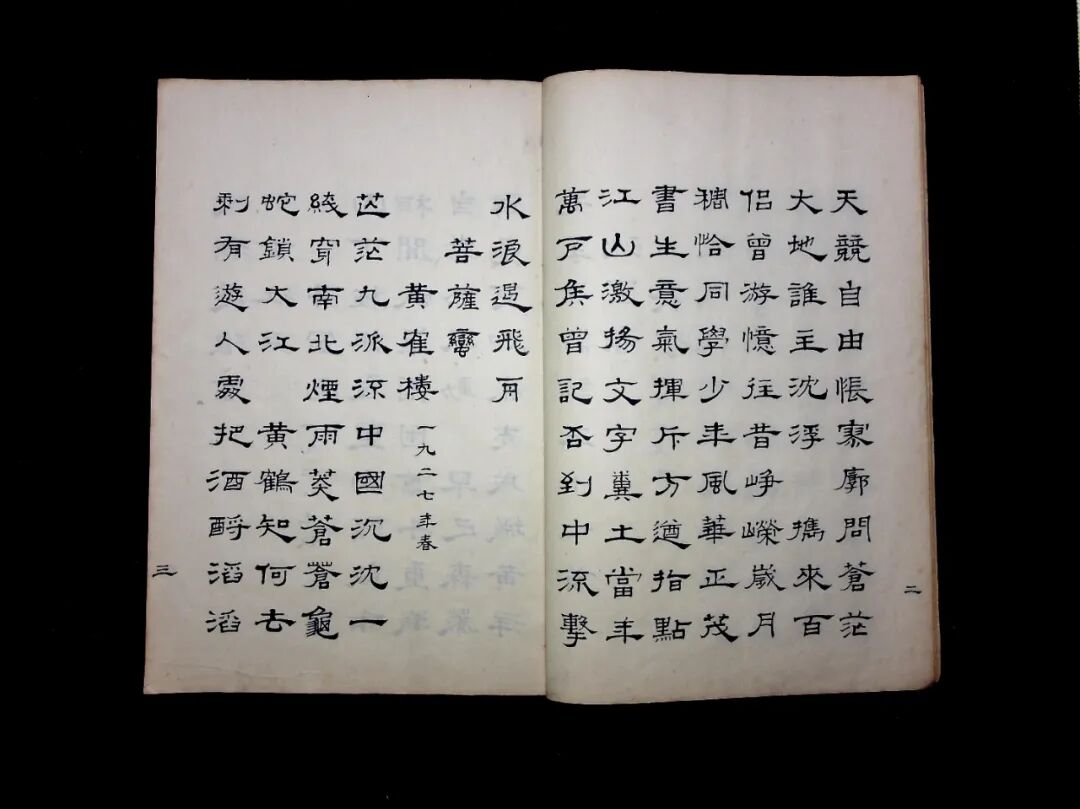 天競自由悵寥廓問蒼茫
大地誰主沈浮　攜來百
侶曾游憶往昔崢嶸歲月
稠恰同學少年風華正茂
書生意氣揮斥方遒指點
江山激揚文字糞土當年
萬戶矦曾記否到中流擊
二
水浪遏飛舟
菩薩蠻
黃隺樓　一九二七年春
芒茫九派流中國沉沈一
綫穿南北煙雨莽蒼蒼龜
蛇鎖大江　黃鶴知何去
剩有遊人處把酒酹滔滔
三